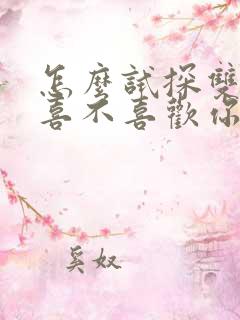 怎麼試探雙
喜不喜歡你
奚奴